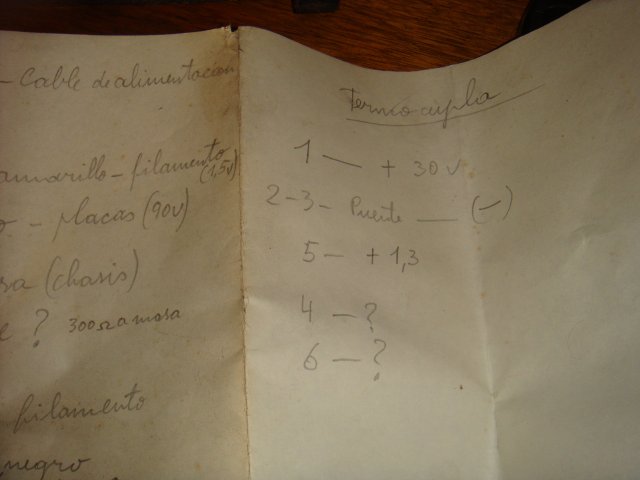 - Cable de alimentacion
amarillo - filamento
(1,5v)
- placas (90v)
(chasis)
? 300Ω a masa
filamento
negro
Termocupla
1 — + 30 v
2-3- Puente — (-)
5 - + 1,3
4 - ?
6 - ?